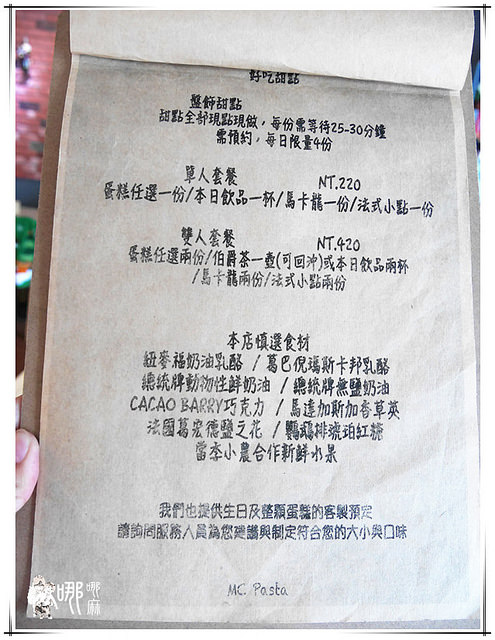 好吃甜點
盤飾甜點
甜點全部現點現做，每份需等待25-30分鐘
需預約，每日限量4份
單人套餐 NT.220
蛋糕任選一份/本日飲品一杯/馬卡龍一份/法式小點一份
雙人套餐 NT.420
蛋糕任選兩份/伯爵茶一壺(可回沖)或本日飲品兩杯
/馬卡龍兩份/法式小點兩份
本店慎選食材
紐麥福奶油乳酪 / 葛巴倪瑪斯卡邦乳酪
總統牌動物性鮮奶油 / 總統牌無鹽奶油
CACAO BARRY巧克力 / 馬達加斯加香草莢
法國葛宏德鹽之花 / 鸚鵡牌琥珀紅糖
當季小農合作新鮮水果
我們也提供生日及整顆蛋糕的客製預定
請詢問服務人員為您建議與制定符合您的大小與口味
MC. Pasta
哪哪麻